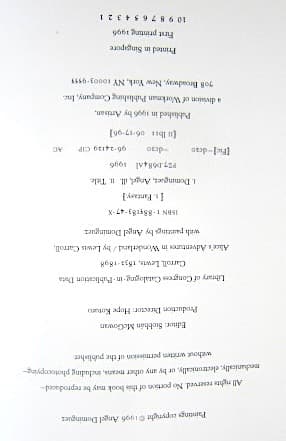 Paintings copyright © 1996 Angel Dominguez
All rights reserved. No portion of this book may be reproduced–
mechanically, electronically, or by any other means, including photocopying–
without written permission of the publisher.
Editor: Siobhán McGowan
Production Director: Hope Koturo
Library of Congress Cataloging-in-Publication Data
Carroll, Lewis, 1832-1898
Alice's Adventures in Wonderland / by Lewis Carroll,
with paintings by Angel Dominguez
ISBN 1-885183-47-X
[1. Fantasy]
1. Dominguez, Angel, ill. II. Title.
PZ7.D684Al 1996
[Fic]–dc20 –dc20 96-24129 CIP AC
[II Ib11 06-17-96]
Published in 1996 by Artisan,
a division of Workman Publishing Company, Inc.
708 Broadway, New York, NY 10003-9555
Printed in Singapore
First printing 1996
10 9 8 7 6 5 4 3 2 1